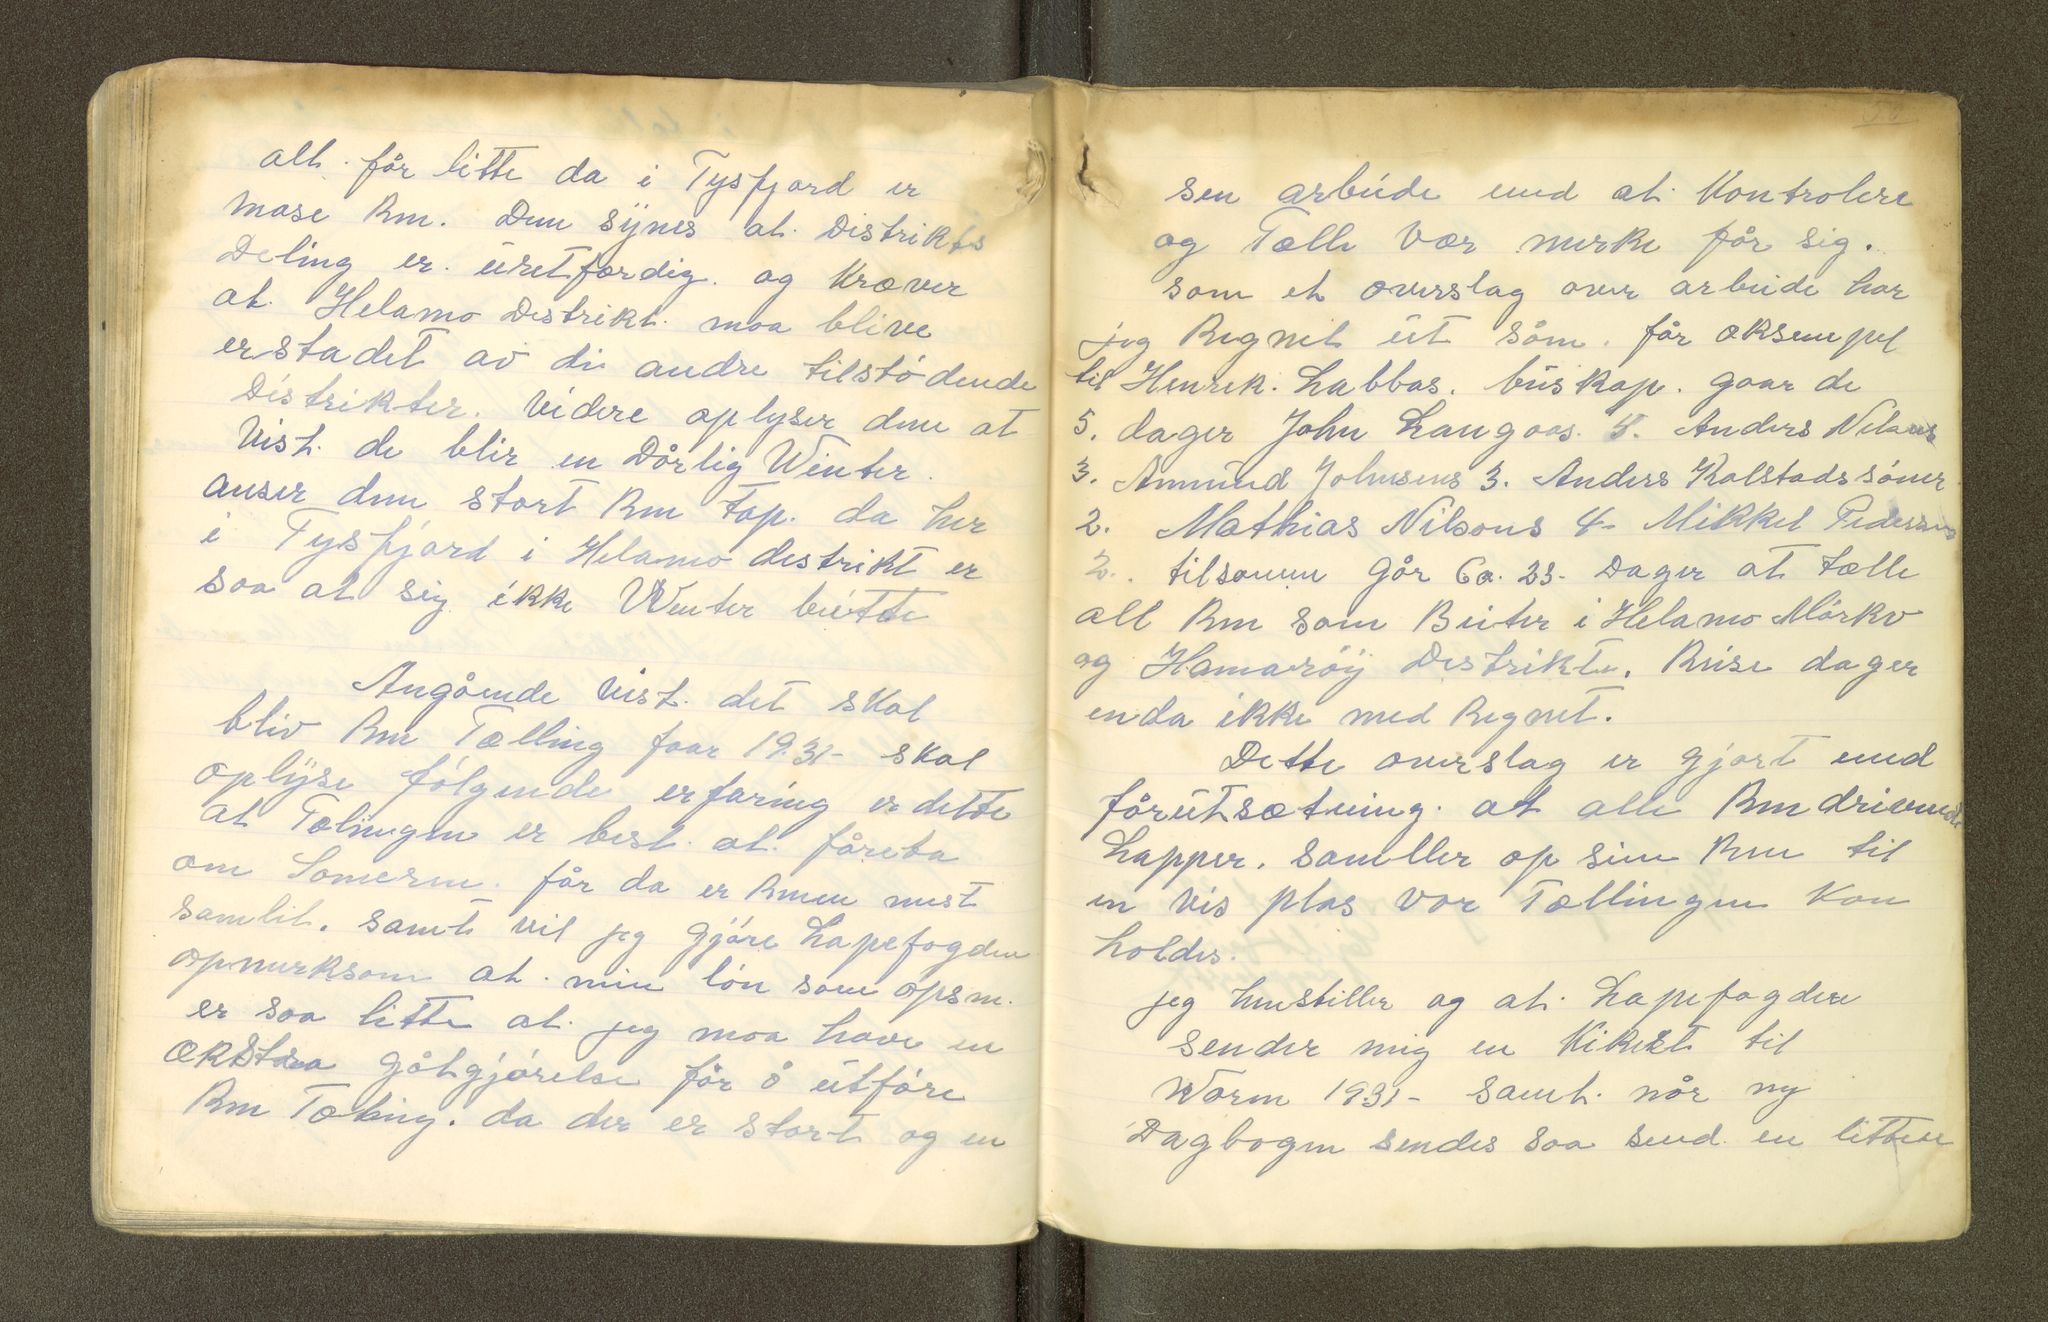 alt. får litte da i Tysfjord er
mase Rm. Dem synes at. Distrikts
Deling er. uretfærdig. og Kræver
at. Helamo Distrikt. maa blive
erstadet av di andre tilstødende
Distrikter. Videre oplyser dem at
Vist. de blir en Dårlig Winter.
anser dem stort Rm Tap. da her
i Tysfjord i Helamo distrikt er
saa at sig ikke Winter beitte
Angående Vist. det skal
bliv Rm Tælling faar 1931- skal
oplyse følgende erfaring er dette
at Tælingen er best. at. fåreta
om Someren. får da er Rmen mest
samlit. samt vil jeg gjøre Lapefogden
opmerksom at. min løn som opsm.
er saa litte at. jeg maa have en
ækstra gåtgjørelse får å utføre
Rm Tæling. da der er stort og en
sen arbeide med at Kontrolere
og Tælle Vær merke får sig.
som et overslag over arbeide har
jeg Regnet ut såm. får æksempel
til Henrik. Labbas. buskap. gaar de
5. dager John Langaas. 4. Anders Nilsens
3. Amund Johnsens 3. Anders Kalstads sønner
2. Mathias Nilsons 4- Mikkel Pedersens
2.. tilsamen går Ca. 23- Dager at tælle
all Rm som Beiter i Helamo Mørkv
og Hamarøy Distrikte. Reise dager
enda ikke med Regnet.
Dette overslag er gjort med
fårutsætning. at alle Rmdrivende
Lapper. samller op sine Rm til
en vis plas vor Tællingen kan
holdes.
jeg henstiller og at. Lapefogdere
sender mig en Kikert til
Wåren 1931- samt. når ny
Dagbogen sendes saa send en litten